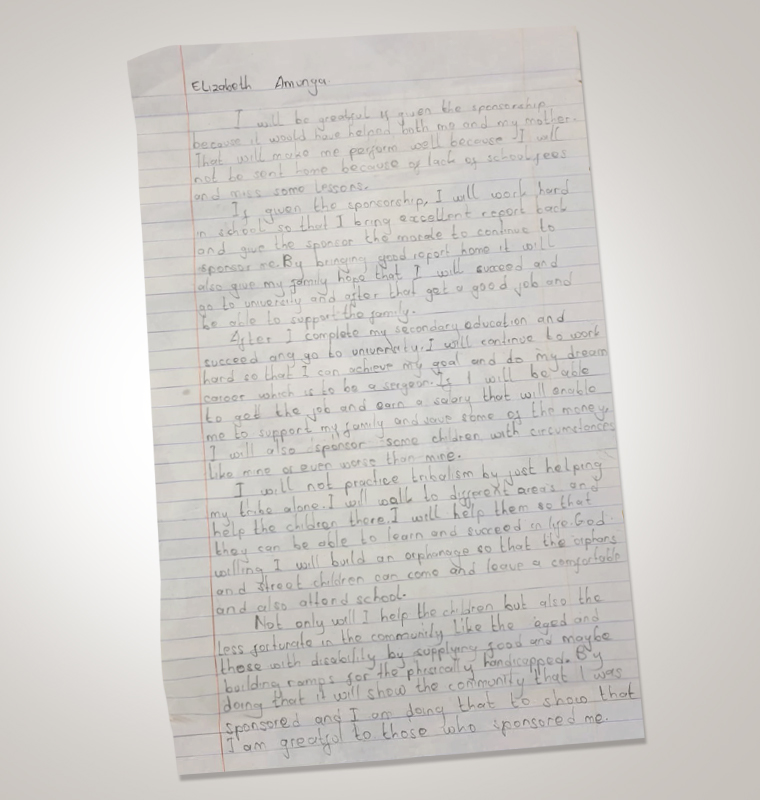 Elizabeth Amunga
I will be greatful if given the sponsorship
because it would have helped both me and my mother.
That will make me perform well because I will
not to sent home because of lack of school fees
and miss some lessons.
If given the sponcorship, I will work hard
in school so that I bring excellent report back
and give the sponsor the morale to continue to
sponsor me. By bringing good report home it will
also give my family hope that I will succeed and
go to university and after that get a good job and
be able to support the family.
After I complete my secondary education and
succeed ang go to university, I will continue to work
hard so that I can achieve my goal and do my dream
career which is to be a surgeon. If I will be able
to get the job and earn a salary that will enable
me to support my family and save some of the money.
I will also sponsor some children with circumstances
like mine or even worse than mine.
I will not practice tribalism by just helping
my tribe alone. I will walk to different areas and
help the children there. I will help them so that
they can be able to learn and succeed in life. God
willing I will build an orphanage so that the orphans
and street children can come and leave a comfortable
and also attend school.
Not only will I help the children but also the
less fortunate in the community like the aged and
those with disability by supplying food and maybe
building ramps for the phsically handicapped. By
doing that it will show the community that I was
sponsored and I am doing that to show that
I am greatful to those who sponsored me.